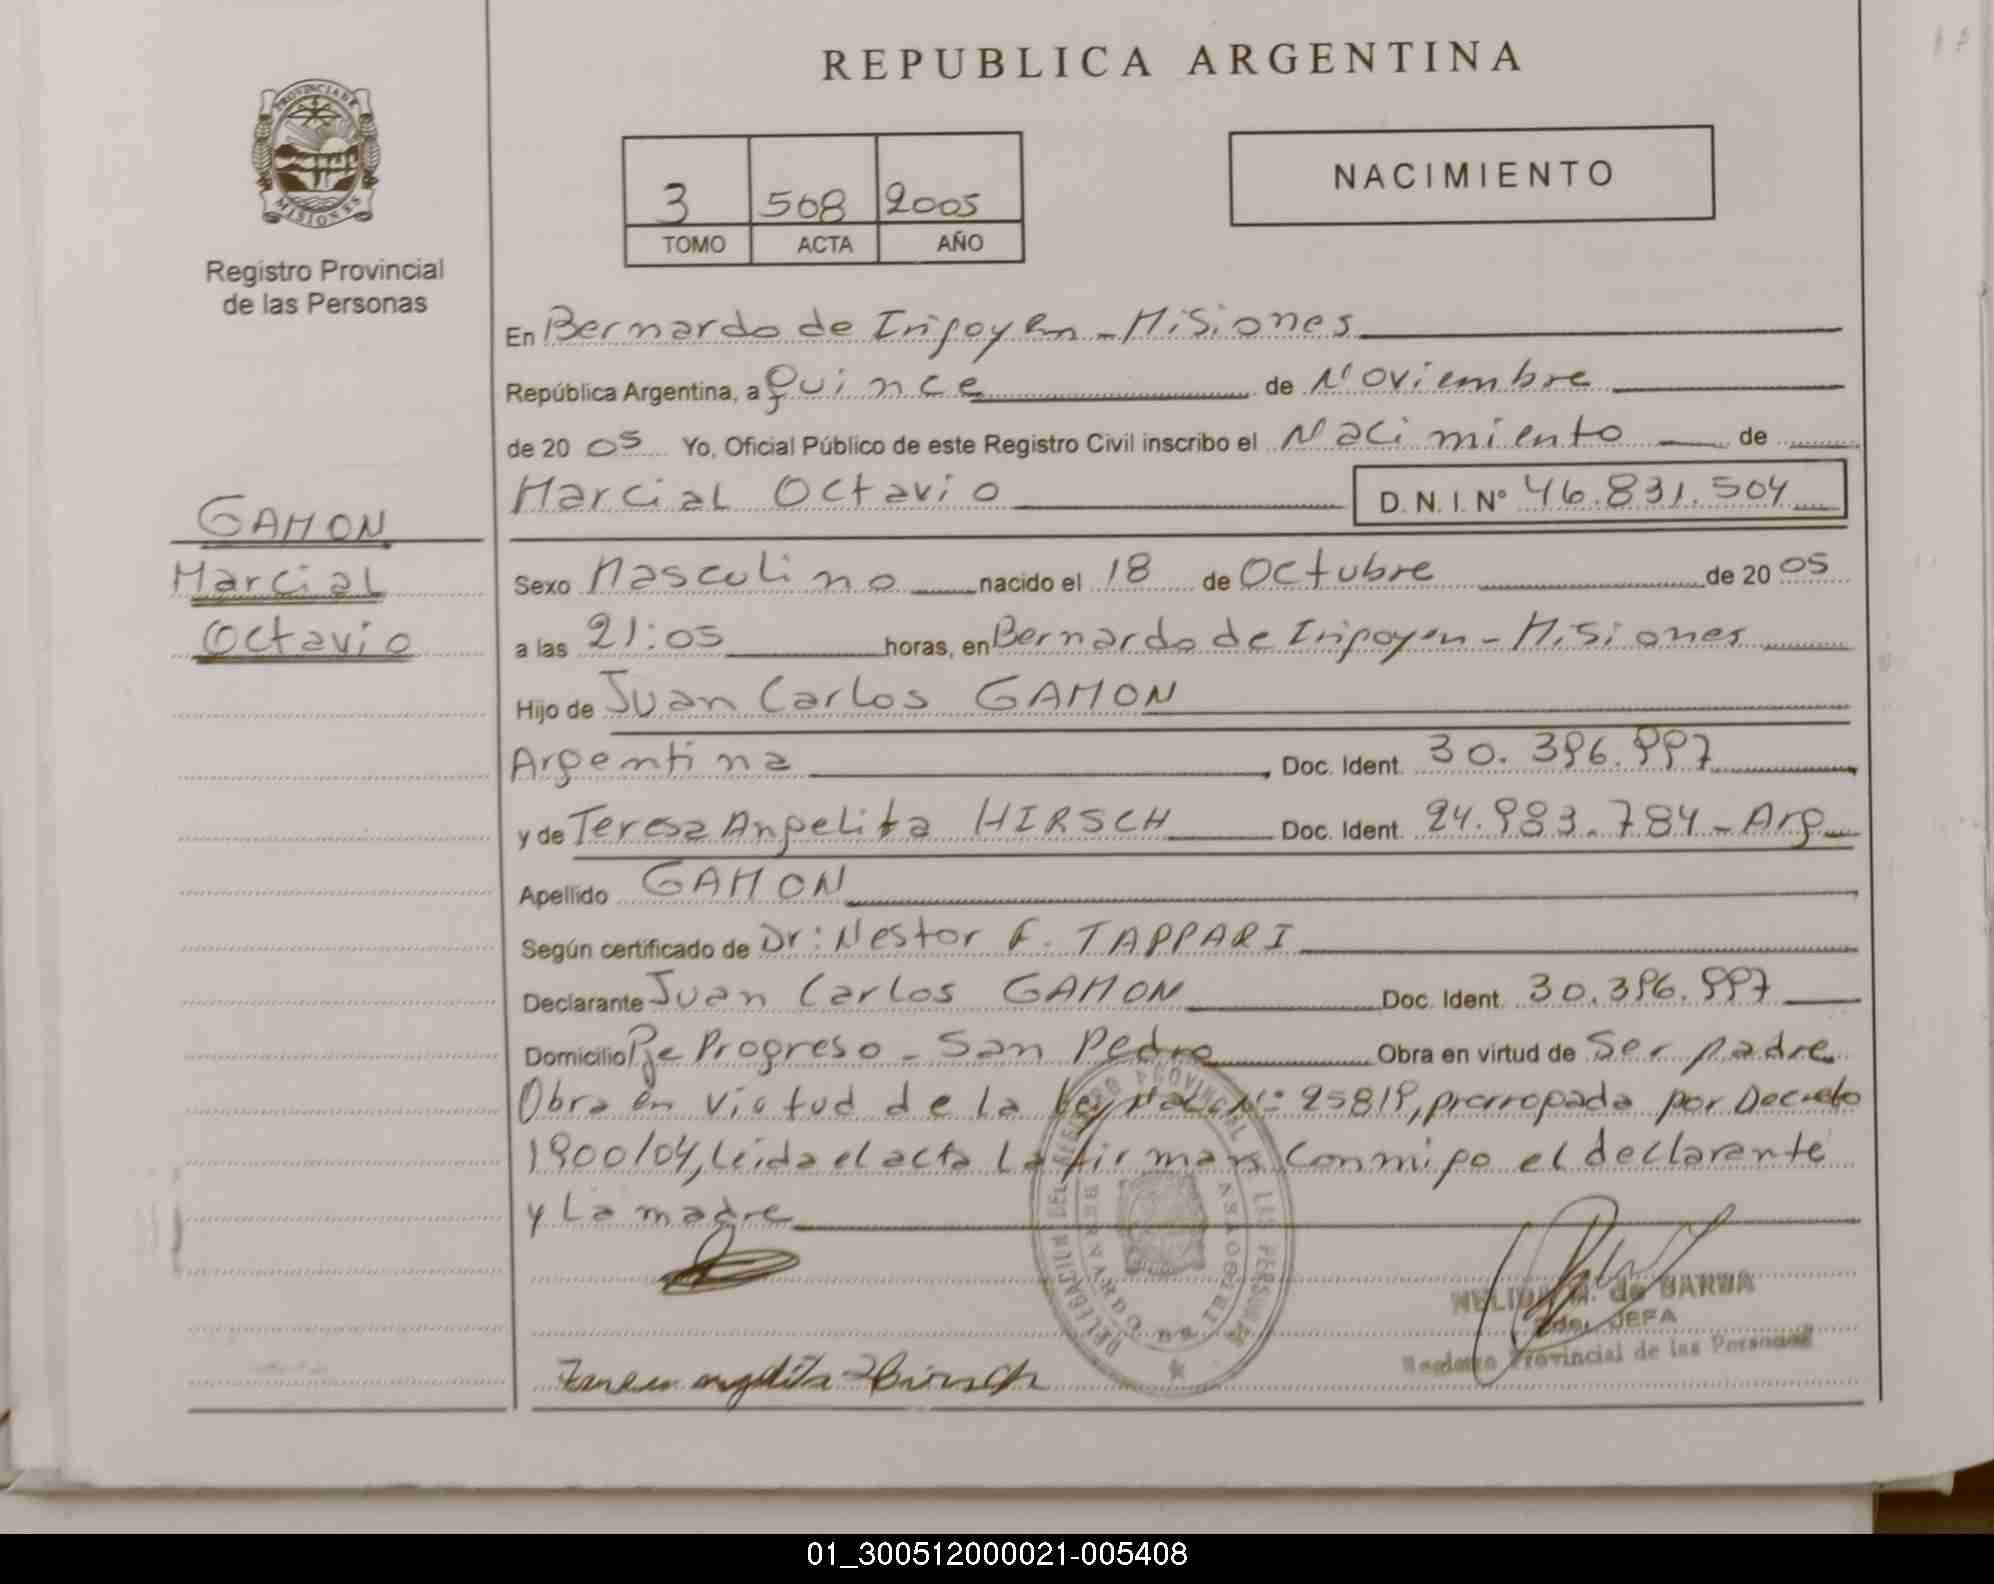 REPUBLICA ARGENTINA
PROVINCIA DE
MISIONES
Registro Provincial
de las Personas
3 508 2005
TOMO ACTA AÑO
NACIMIENTO
En Bernardo de Irigoyen - Misiones
República Argentina, a Quince de Noviembre
de 20 05 Yo, Oficial Público de este Registro Civil inscribo el Nacimiento de
Marcial Octavio D. N. I. N° 46.831.504
GAMON
Marcial
Octavio
Sexo Masculino nacido el 18 de Octubre de 20 05
a las 21:05 horas, en Bernardo de Irigoyen - Misiones
Hijo de Juan Carlos GAMON
Argentina Doc. Ident. 30.396.997
y de Teresa Angelita HIRSCH Doc. Ident. 24.983.784 - Arg
Apellido GAMON
Según certificado de Dr: Nestor F. TAPPARI
Declarante Juan Carlos GAMON Doc. Ident. 30.396.997
Domicilio Pje Progreso - San Pedro Obra en virtud de Ser padre
Obra en virtud de la Ley Nac. N°: 25819, prorrogada por Decreto
1900/04, leída el acta la firman conmigo el declarante
y La madre
DELEGACION DEL REGISTRO PROVINCIAL DE LAS PERSONAS
BERNARDO DE IRIGOYEN
de BARUA
JEFA
Registro Provincial de las Personas
01_300512000021-005408